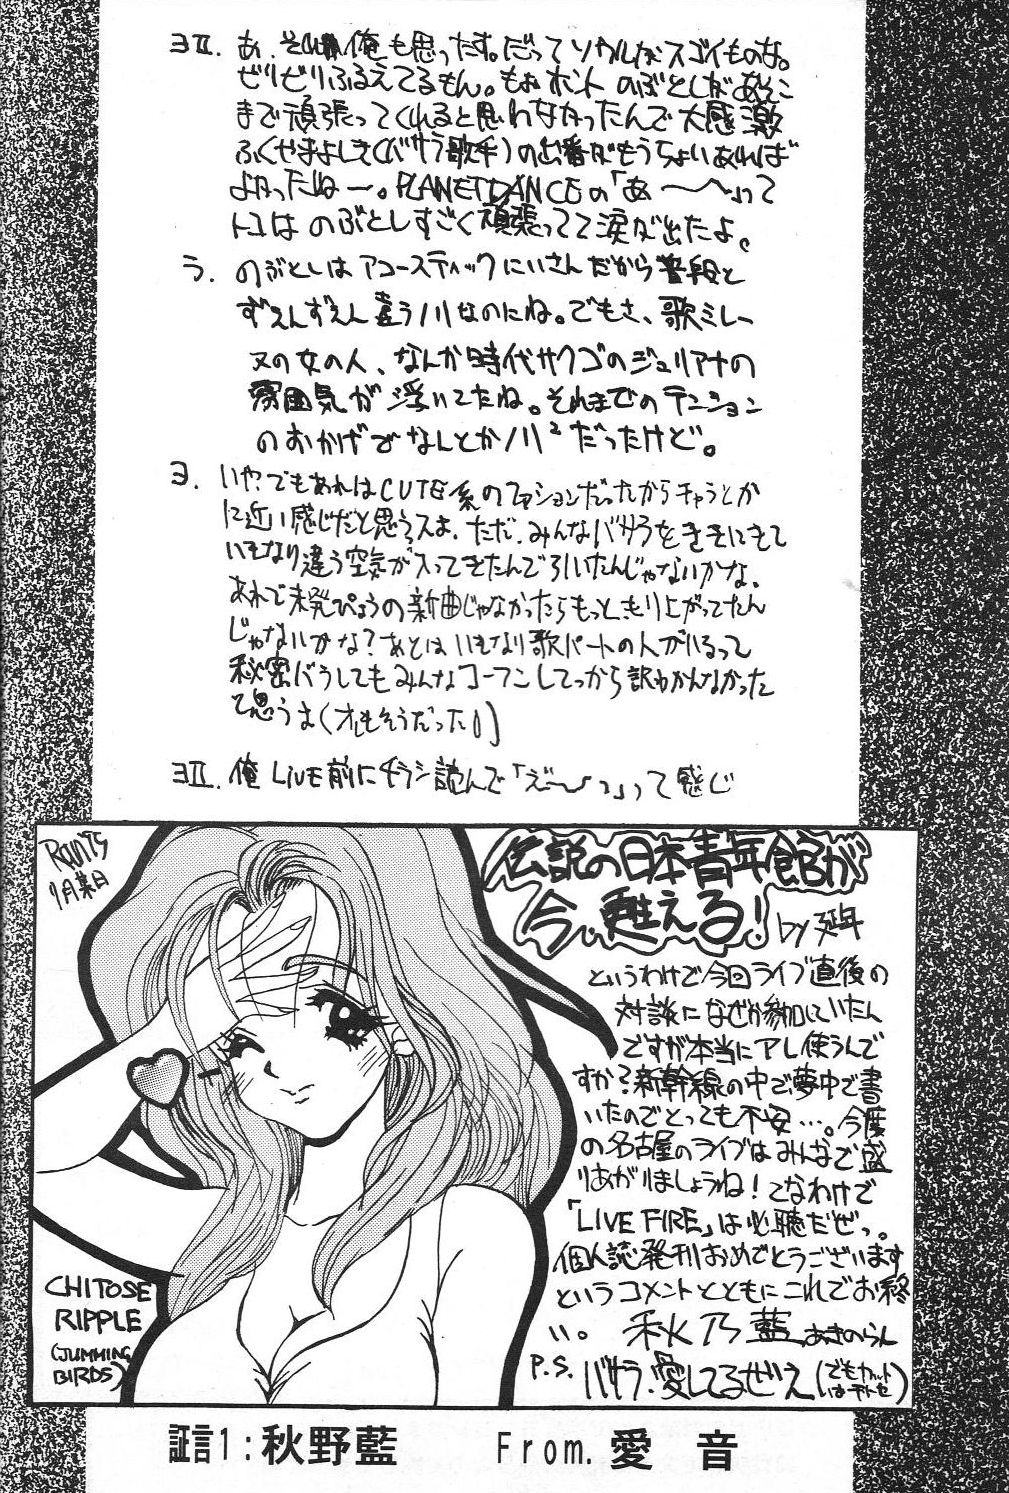 ヨII. あ、それ俺も思ったす。だってソウルがスゴイものな。
ビリビリふるえてるもん。もぉホント のぶとしがあそこ
まで頑張ってくれると思わなかったんで大感激
ふくやまよしき(バサラ歌手)の出番がもうちょいあれば
よかったねー。PLANET DANCEの「あ〜〜」って
トコは のぶとしすごく頑張ってて涙が出たよ。
う. のぶとしはアコースティックにいさんだから普段と
ずぇんずぇん違うノリなのにね。でもさ、歌ミレー
ヌの女の人、なんか時代サクゴのジュリアナの
雰囲気が浮いてたね。それまでのテンション
のおかげでなんとかノリ²だったけど。
ヨ. いや?でもあれはCUTE系のファションだったからキャラとか
に近い感じだと思うスよ。ただ、みんなバサラをききにきて
いきなり違う空気が入ってきたんで引いたんじゃないかな。
あれで未発ぴょうの新曲じゃなかったらもっともり上がってたん
じゃないかな?あとはいきなり歌パートの人がいるって
秘密バラしてもみんなコーフンしてっから訳わかんなかった
て思うよ(オレもそうだった!)
ヨII. 俺 LIVE前にチラシ読んで「え〜〜っ」って感じ
Rants
1月某日
伝説の日本青年館が
今、甦える!
by 延年
というわけで今回ライブ直後の
対談になぜか参加していたん
ですが本当にアレ使うんで
すか?新幹線の中で夢中で書
いたのでとっても不安…。今度
の名古屋のライブはみんなで盛
りあがりましょうね!てなわけで
「LIVE FIRE」は必聴だぜっ。
個人誌発刊おめでとうございます
というコメントとともにこれでお終
い。 秋乃藍 あきのらん
P.S. バサラ、愛してるぜえ(でもカットはチトセ)
CHITOSE
RIPPLE
(JUMMING
BIRDS)
証言1:秋野藍 From.愛 音